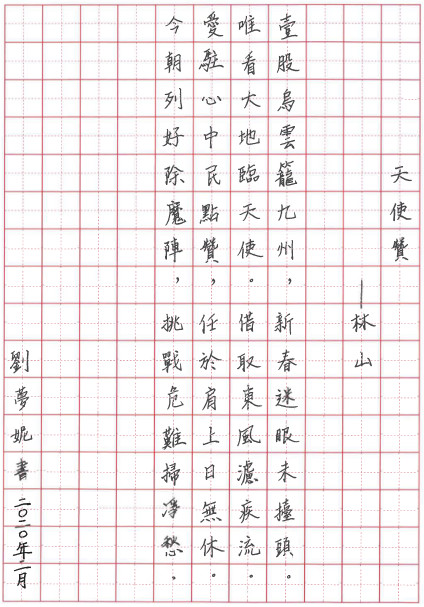 天使贊
—林山
壹股烏雲籠九州，新春迷眼未擡頭。
唯看大地臨天使。借取東風濾疾流。
愛駐心中民點贊，任於肩上日無休。
今朝列好除魔陣，挑戰危難掃淨愁。
劉夢妮書二〇二〇年二月